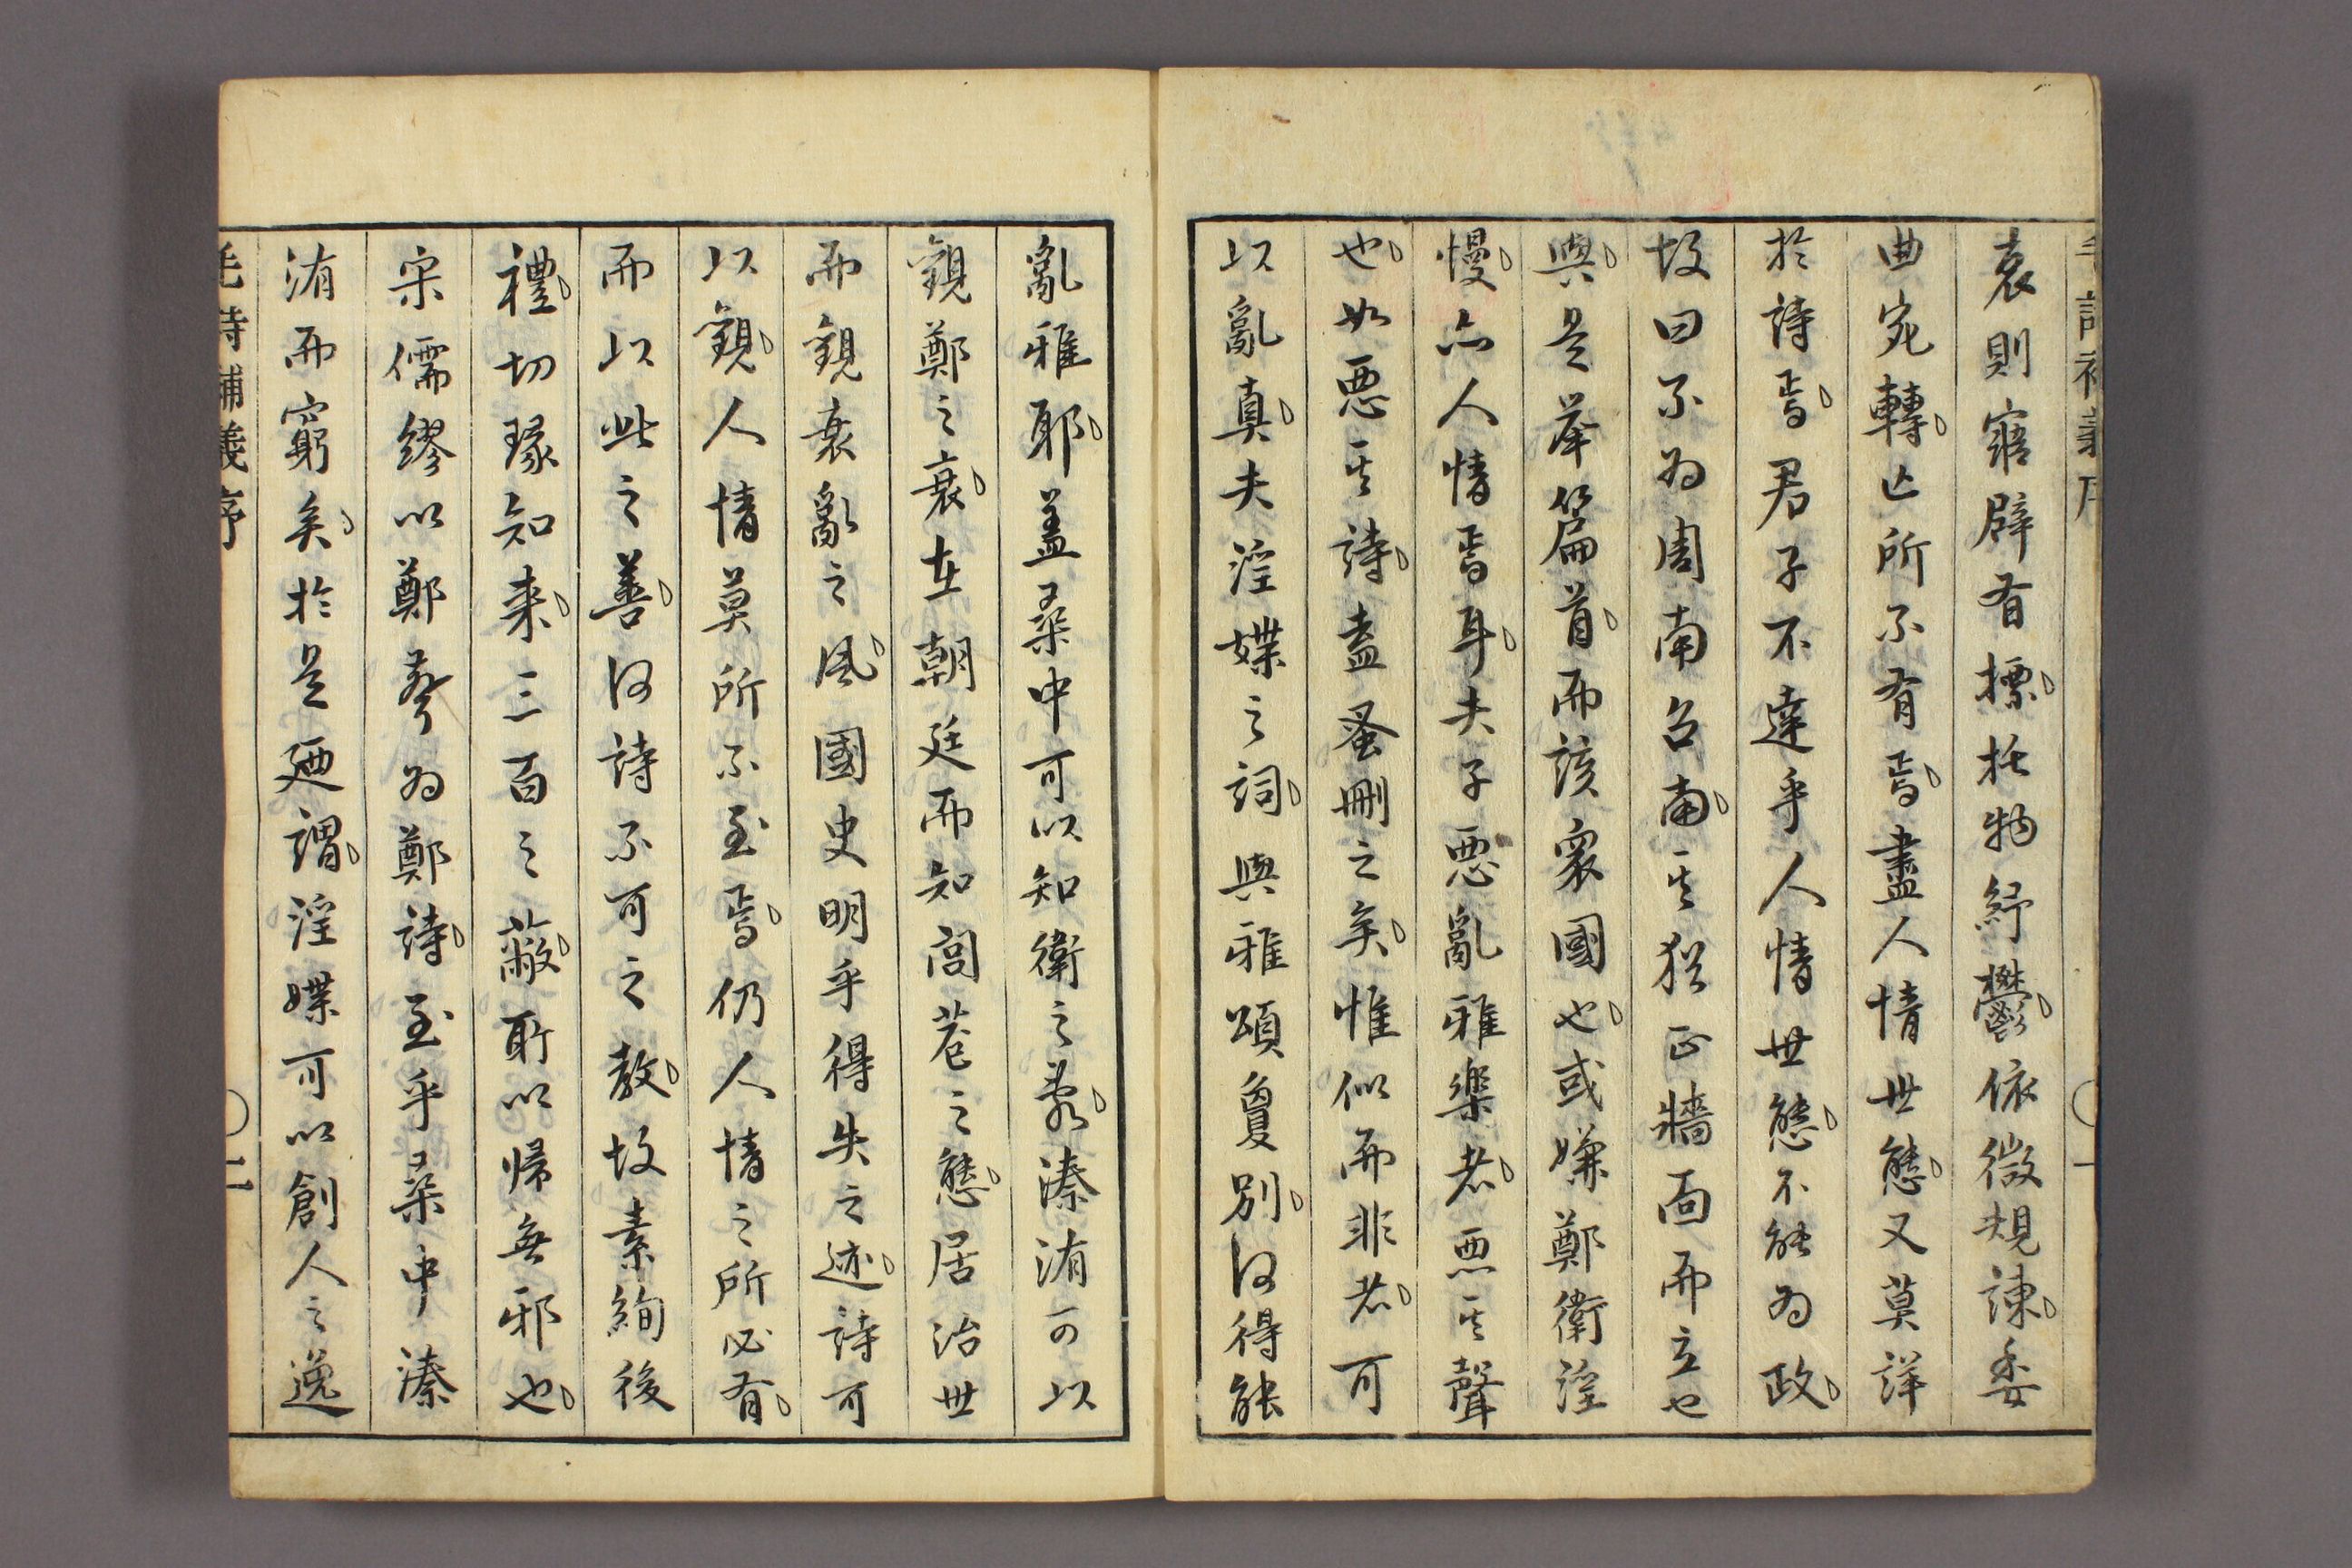 哀則寤辟有摽托物紓鬱依微規諫委
曲宛轉亡所不有焉盡人情世態又莫詳
於詩焉君子不達乎人情世態不能為政
故曰不為周南召南其猶正牆面而立也
與是舉篇首而該衆國也或嫌鄭衛淫
慢亦人情焉耳夫子惡亂雅樂者惡其聲
也如惡其詩盍蚤刪之矣惟似而非者可
以亂真夫淫媟之詞與雅頌敻別何得能
亂雅耶蓋桑中可以知衛之衰溱洧可以
觀鄭之衰在朝廷而知閭巷之態居治世
而觀衰亂之風國史明乎得失之迹詩可
以觀人情莫所不至焉仍人情之所必有
而以此之善何詩不可之教故素絢後
禮切琢知来三百之蔽所以帰無邪也
宋儒繆以鄭聲為鄭詩至乎桑中溱
洧而窮矣於是廼謂淫媟可以創人之逸
毛詩補義序
二